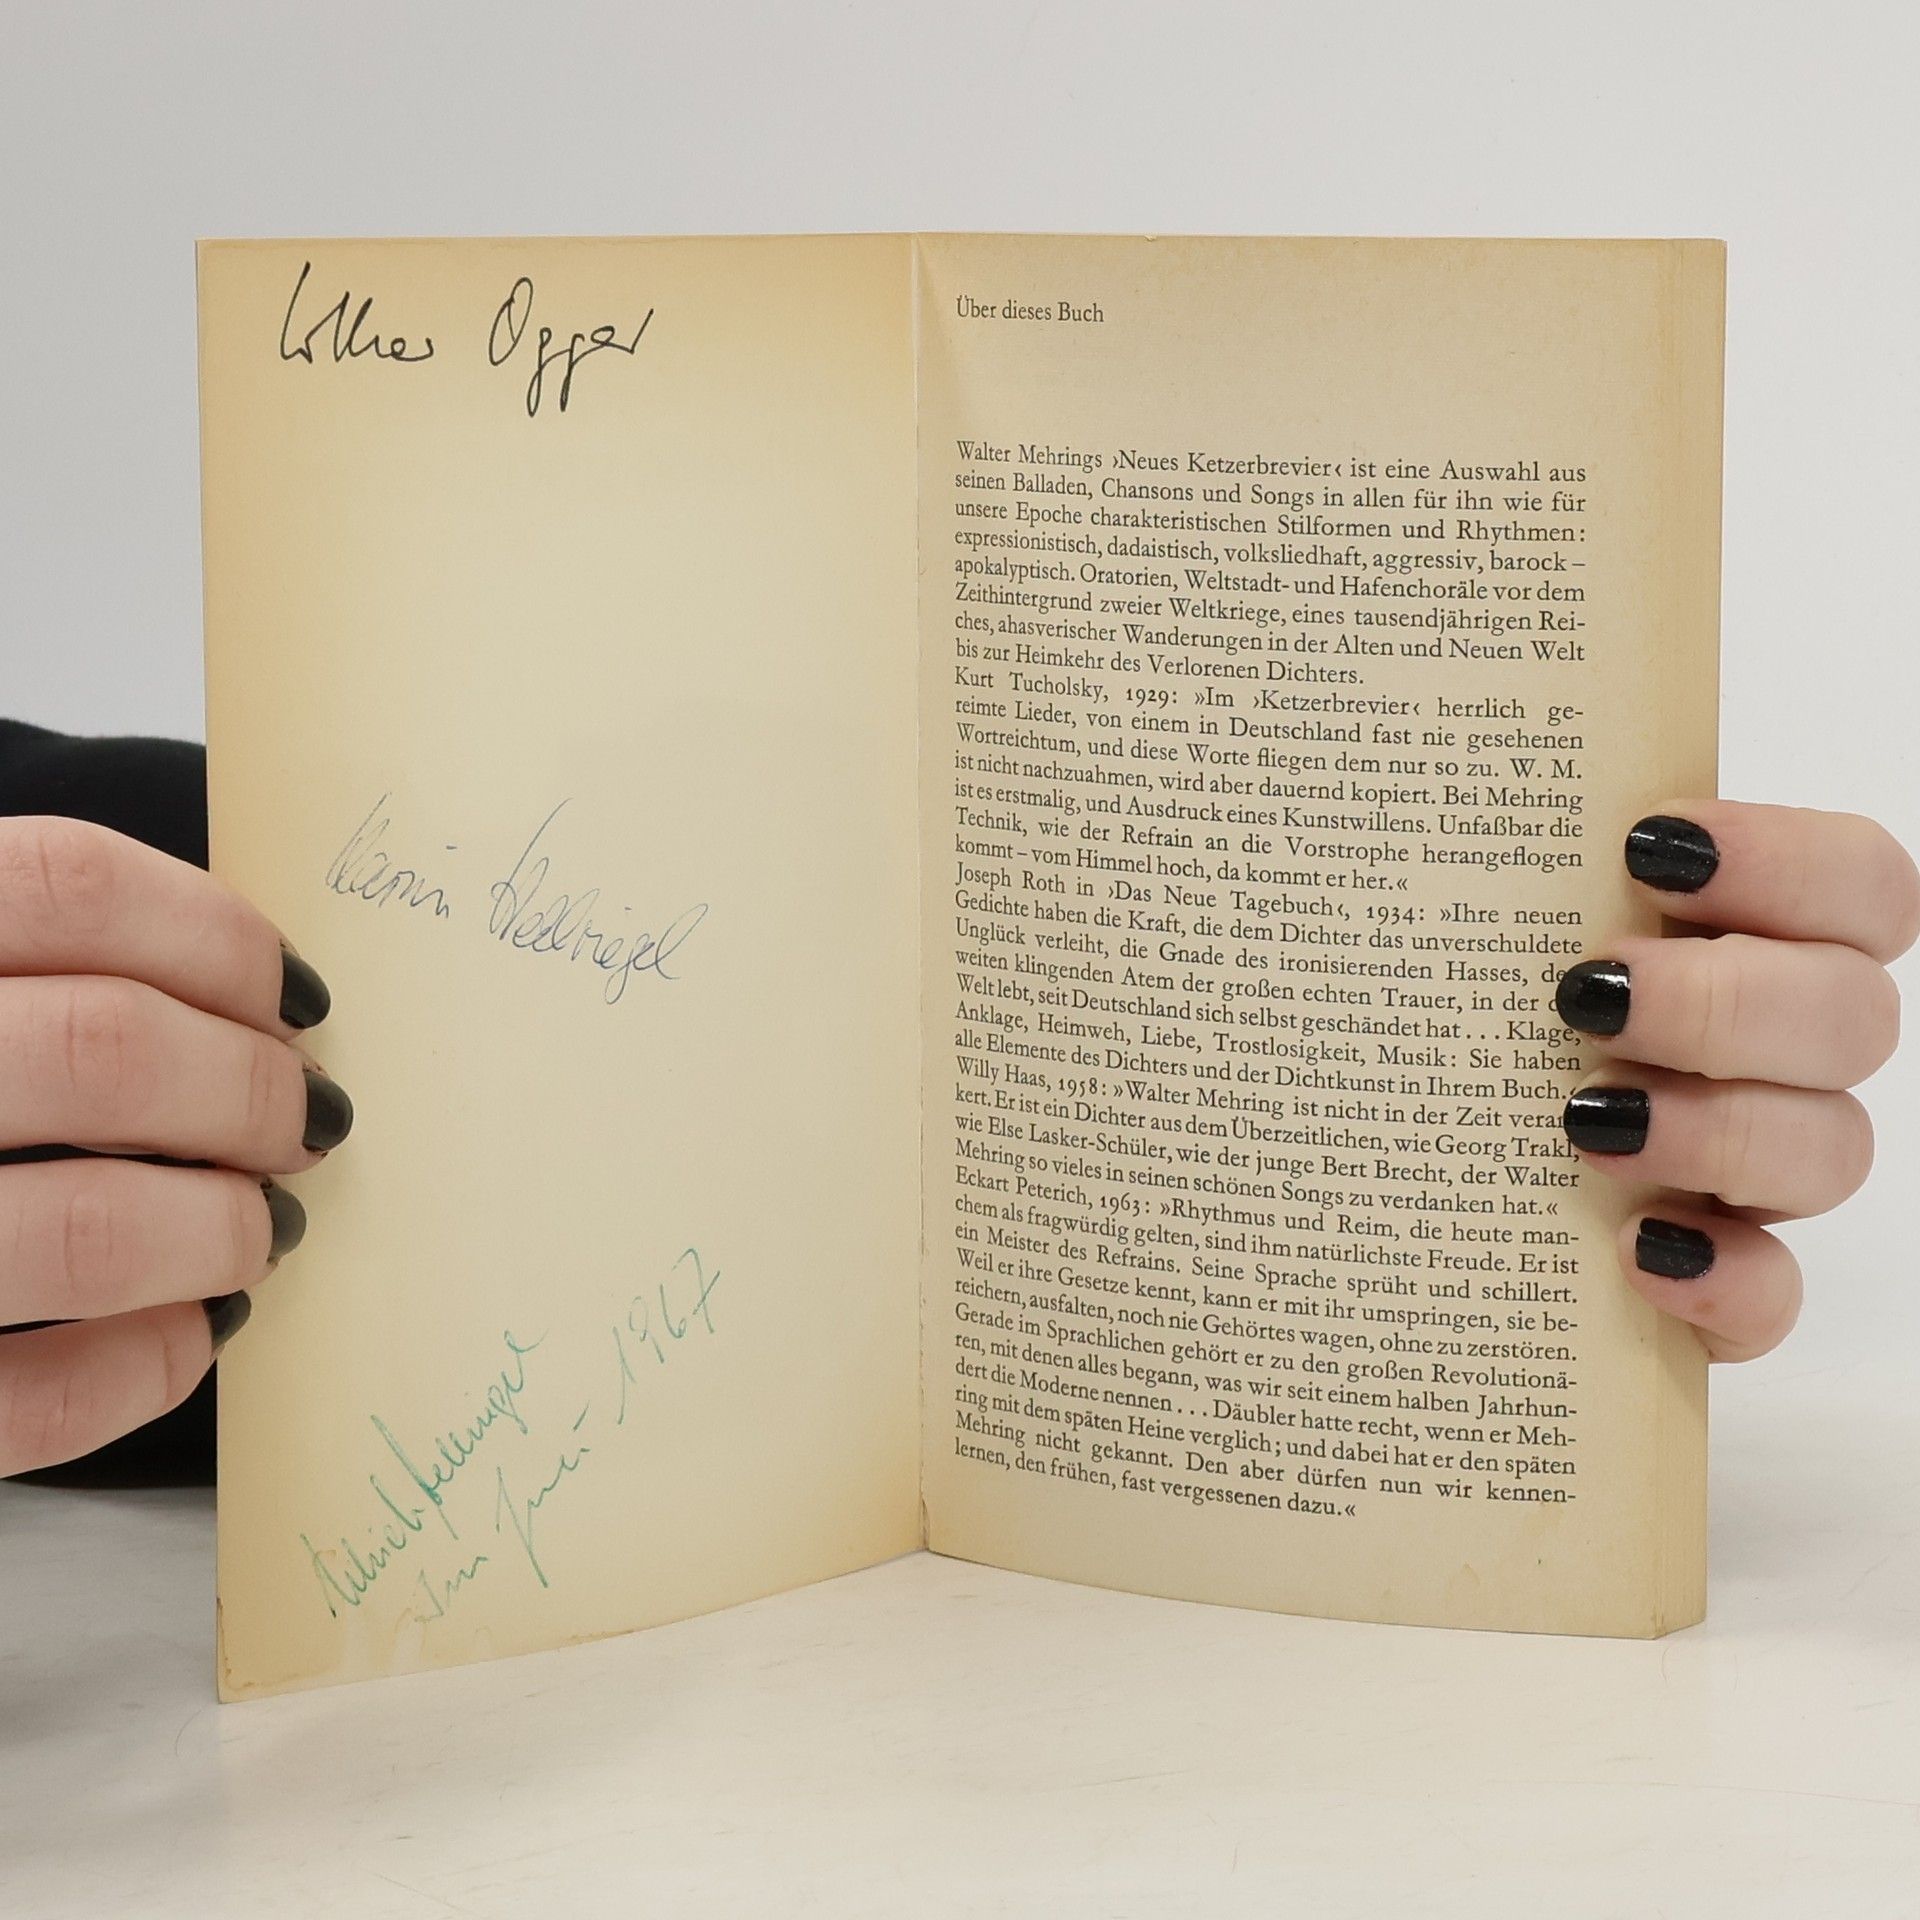 Lothar Ogger
Karin Hellriegel
Ulrich
im Juni 1967
Über dieses Buch
Walter Mehrings ›Neues Ketzerbrevier‹ ist eine Auswahl aus
seinen Balladen, Chansons und Songs in allen für ihn wie für
unsere Epoche charakteristischen Stilformen und Rhythmen:
expressionistisch, dadaistisch, volksliedhaft, aggressiv, barock –
apokalyptisch. Oratorien, Weltstadt- und Hafenchoräle vor dem
Zeithintergrund zweier Weltkriege, eines tausendjährigen Rei-
ches, ahasverischer Wanderungen in der Alten und Neuen Welt
bis zur Heimkehr des Verlorenen Dichters.
Kurt Tucholsky, 1929: »Im ›Ketzerbrevier‹ herrlich ge-
reimte Lieder, von einem in Deutschland fast nie gesehenen
Wortreichtum, und diese Worte fliegen dem nur so zu. W. M.
ist nicht nachzuahmen, wird aber dauernd kopiert. Bei Mehring
ist es erstmalig, und Ausdruck eines Kunstwillens. Unfaßbar die
Technik, wie der Refrain an die Vorstrophe herangeflogen
kommt – vom Himmel hoch, da kommt er her.«
Joseph Roth in ›Das Neue Tagebuch‹, 1934: »Ihre neuen
Gedichte haben die Kraft, die dem Dichter das unverschuldete
Unglück verleiht, die Gnade des ironisierenden Hasses, de
weiten klingenden Atem der großen echten Trauer, in der d
Welt lebt, seit Deutschland sich selbst geschändet hat . . . Klage,
Anklage, Heimweh, Liebe, Trostlosigkeit, Musik: Sie haben
alle Elemente des Dichters und der Dichtkunst in Ihrem Buch.«
Willy Haas, 1958: »Walter Mehring ist nicht in der Zeit veran
kert. Er ist ein Dichter aus dem Überzeitlichen, wie Georg Trakl,
wie Else Lasker-Schüler, wie der junge Bert Brecht, der Walter
Mehring so vieles in seinen schönen Songs zu verdanken hat.«
Eckart Peterich, 1963: »Rhythmus und Reim, die heute man-
chem als fragwürdig gelten, sind ihm natürlichste Freude. Er ist
ein Meister des Refrains. Seine Sprache sprüht und schillert.
Weil er ihre Gesetze kennt, kann er mit ihr umspringen, sie be-
reichern, ausfalten, noch nie Gehörtes wagen, ohne zu zerstören.
Gerade im Sprachlichen gehört er zu den großen Revolutionä-
ren, mit denen alles begann, was wir seit einem halben Jahrhun-
dert die Moderne nennen . . . Däubler hatte recht, wenn er Meh-
ring mit dem späten Heine verglich; und dabei hat er den späten
Mehring nicht gekannt. Den aber dürfen nun wir kennen-
lernen, den frühen, fast vergessenen dazu.«